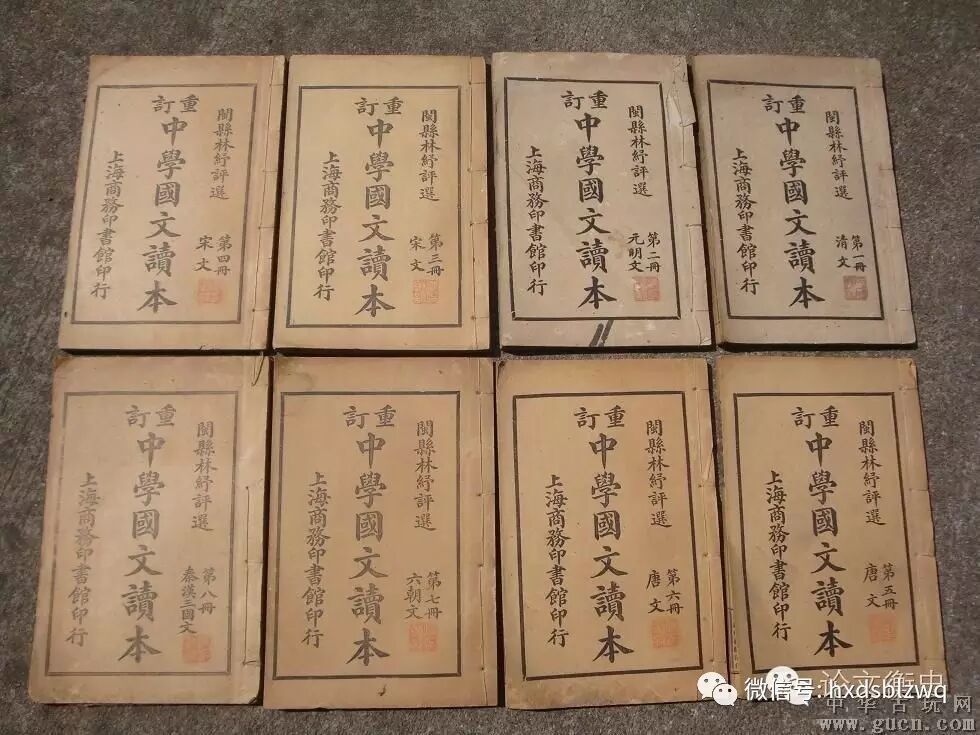 重訂
中學國文讀本
閩縣林紓評選
第一冊
清文
上海商務印書館印行
重訂
中學國文讀本
閩縣林紓評選
第二冊
元明文
上海商務印書館印行
重訂
中學國文讀本
閩縣林紓評選
第三冊
宋文
上海商務印書館印行
重訂
中學國文讀本
閩縣林紓評選
第四冊
宋文
上海商務印書館印行
重訂
中學國文讀本
閩縣林紓評選
第五冊
唐文
上海商務印書館印行
重訂
中學國文讀本
閩縣林紓評選
第六冊
唐文
上海商務印書館印行
重訂
中學國文讀本
閩縣林紓評選
第七冊
六朝文
上海商務印書館印行
重訂
中學國文讀本
閩縣林紓評選
第八冊
秦漢三國文
上海商務印書館印行
论文衡史
微信号: hxdsblzwq
中华古玩网
www.gucn.com